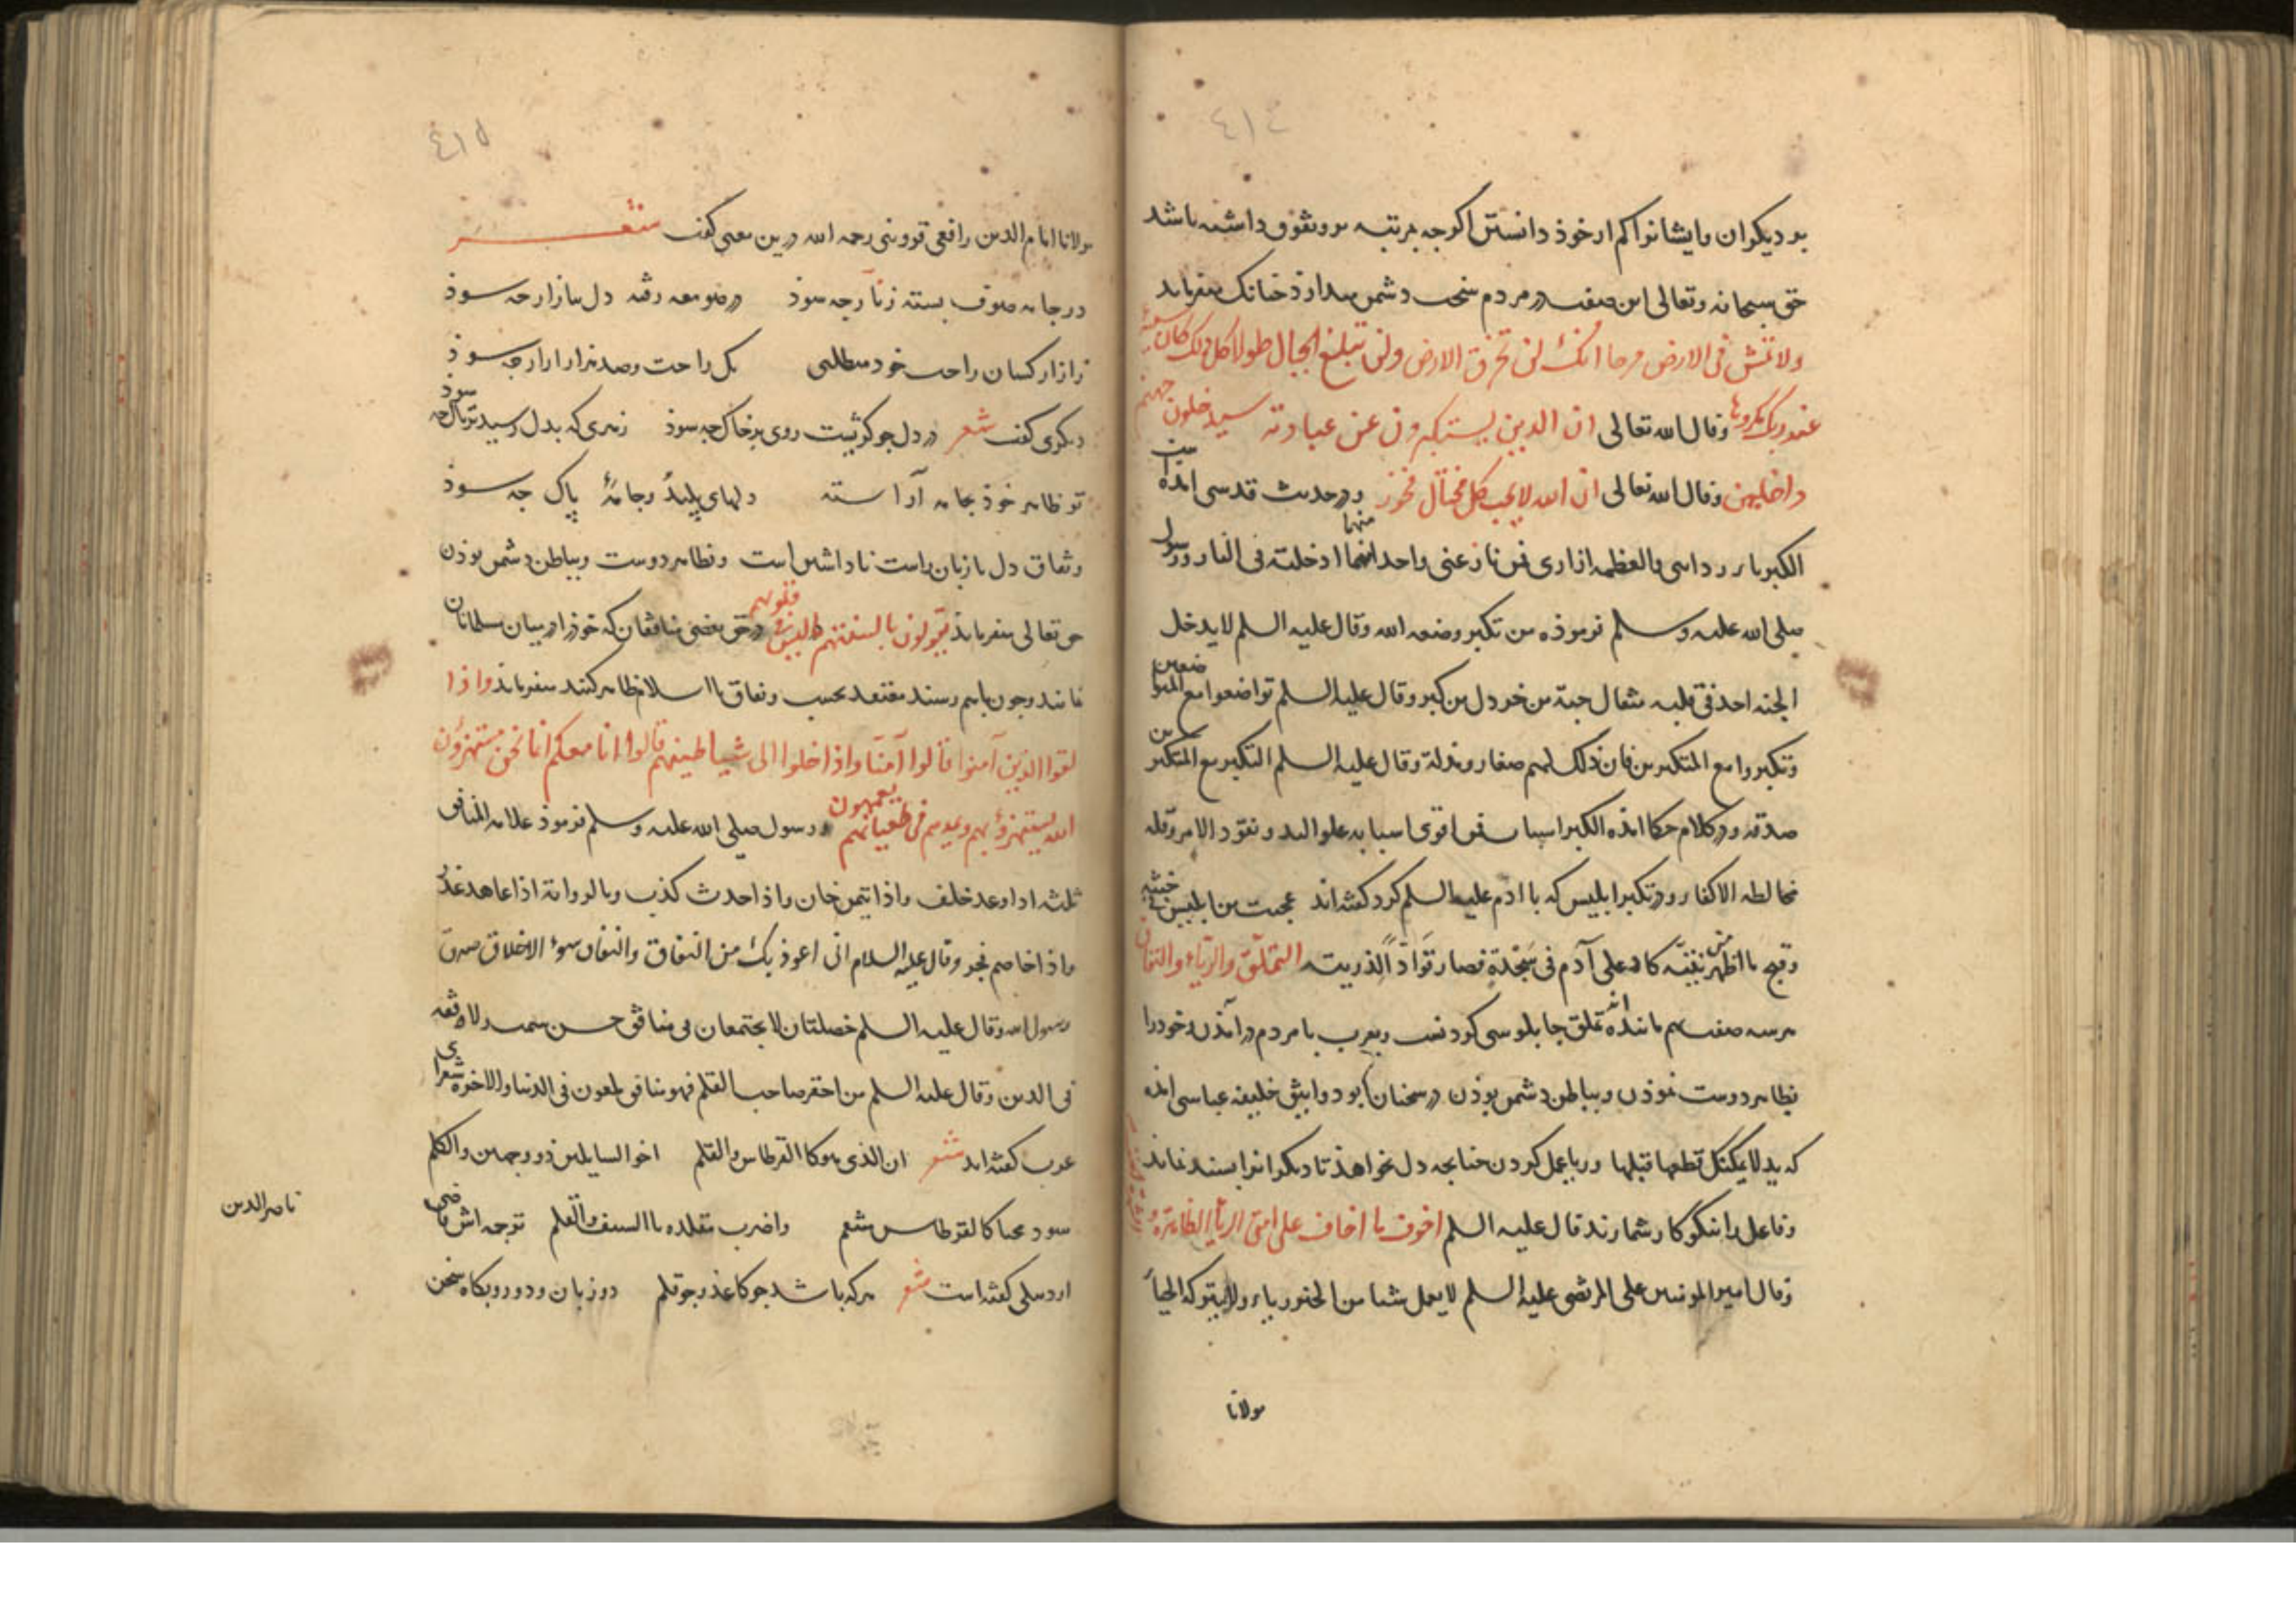 ٤١٤
بر دیکران و ایشانرا کم از خوذ دانستن اکرجه بمرتبه برو تفوق داشته باشد
حق سبحانه وتعالی این صفت در مردم سخت دشمن میدارذ جنانک میفرماید
ولا تمش فی الارض مرحا انک لن تخرق الارض ولن تبلغ الجبال طولا کل ذلک کان سیئه
عند ربک مکروها وقال الله تعالی ان الذین یستکبرون عن عبادته سیدخلون جهنم
داخلین وقال الله تعالی ان الله لا یحب کل مختال فخور ودر حدیث قدسی امذه است
الکبریاء ردایی والعظمه ازاری فمن نازعنی واحدا منهما ادخلته فی النار ورسول
صلی الله علیه وسلم فرموذه من تکبر وضعه الله وقال علیه السلم لا یدخل
الجنه احد فی قلبه مثقال حبة من خردل من کبر وقال علیه السلم تواضعوا مع المتواضعین
وتکبروا مع المتکبرین فان ذلک لهم صغار ومذلة وقال علیه السلم التکبر مع المتکبرین
صدقه ودر کلام حکما امذه الکبر اسباب فمن اقوی اسبابه علو الید ونفوذ الامر وقلة
مخالطه الاکفا ودر تکبر ابلیس که با ادم علیه السلم کرد کفته اند عجبت من ابلیس فی خبثه
وقبح ما اظهر من نیته تاه علی آدم فی سجدة فصار قوادا لذریته التملق والریاء والنفاق
هرسه صفت بهم مانده اند تملق جابلوسی کردنست وبعرب با مردم درامذن وخودرا
بظاهر دوست نموذن وبباطن دشمن بوذن در سخنان ابو دوانیق خلیفه عباسی امذه
که ید لا یمکنک قطعها قبلها وریا عمل کردن جنانجه دل نخواهذ تا دیکران انرا بسندند
وفاعل را نیکوکار شمارند قال علیه السلم اخوف ما اخاف علی امتی الریاء الظاهرة و
وقال امیر المومنین علی المرتضی علیه السلم لا یعمل شیئا من الخیر ریاء ولا یترکه الحیاء
مولانا
٤١٥
مولانا امام الدین رافعی قزوینی رحمه الله درین معنی کفت شعر
در جامه صوف بسته زنار جه سوذ در صومعه رفته دل ببازار جه سوذ
زازار کسان راحت خود میطلبی یک راحت وصد هزار ازار جه سوذ
دیکری کفت شعر در دل جو کژیست روی بر خاک جه سوذ زهری که بدل رسید تریاک جه سوذ
تو ظاهر خوذ بجامه آراسته دلهای پلید وجامۀ پاک جه سوذ
ونفاق دل با زبان راست ناداشتن است وبظاهر دوست وبباطن دشمن بوذن
حق تعالی میفرماید یقولون بالسنتهم ما لیس فی قلوبهم ودر حق بعضی منافقان که خوذرا در میان مسلمانان
نمایند وجون باهم رسند معتقد نحسب ونفاق با اسلام ظاهر کنند میفرماید واذا
لقوا الذین آمنوا قالوا آمنا واذا خلوا الی شیاطینهم قالوا انا معکم انما نحن مستهزؤن
الله یستهزؤ بهم ویمدهم فی طغیانهم یعمهون ورسول صلی الله علیه وسلم فرموذ علامة المنافق
ثلثه اذا وعد خلف واذا ایتمن خان واذا حدث کذب وبالروایة اذا عاهد غدر
واذا خاصم فجر وقال علیه السلام انی اعوذ بک من النفاق والنفاق سوء الاخلاق صدق
رسول الله وقال علیه السلم خصلتان لا یجتمعان فی منافق حسن سمت ولا فقه
فی الدین وقال علیه السلم من احقر صاحب القلم فهو منافق ملعون فی الدنیا والاخرة شعرای
عرب کفته اند شعر ان الذی هو کالقرطاس والقلم اخو السایلین ذو وجهین والکلم
سود محیا کالقرطاس شعم واضرب مقلده باالسیف والقلم ترجمه اش قاضی
ناصر الدین
اردبیلی کفته است شعر هرکه باشد جو کاغذ وجو قلم دو زبان ودورو بکاه سخن